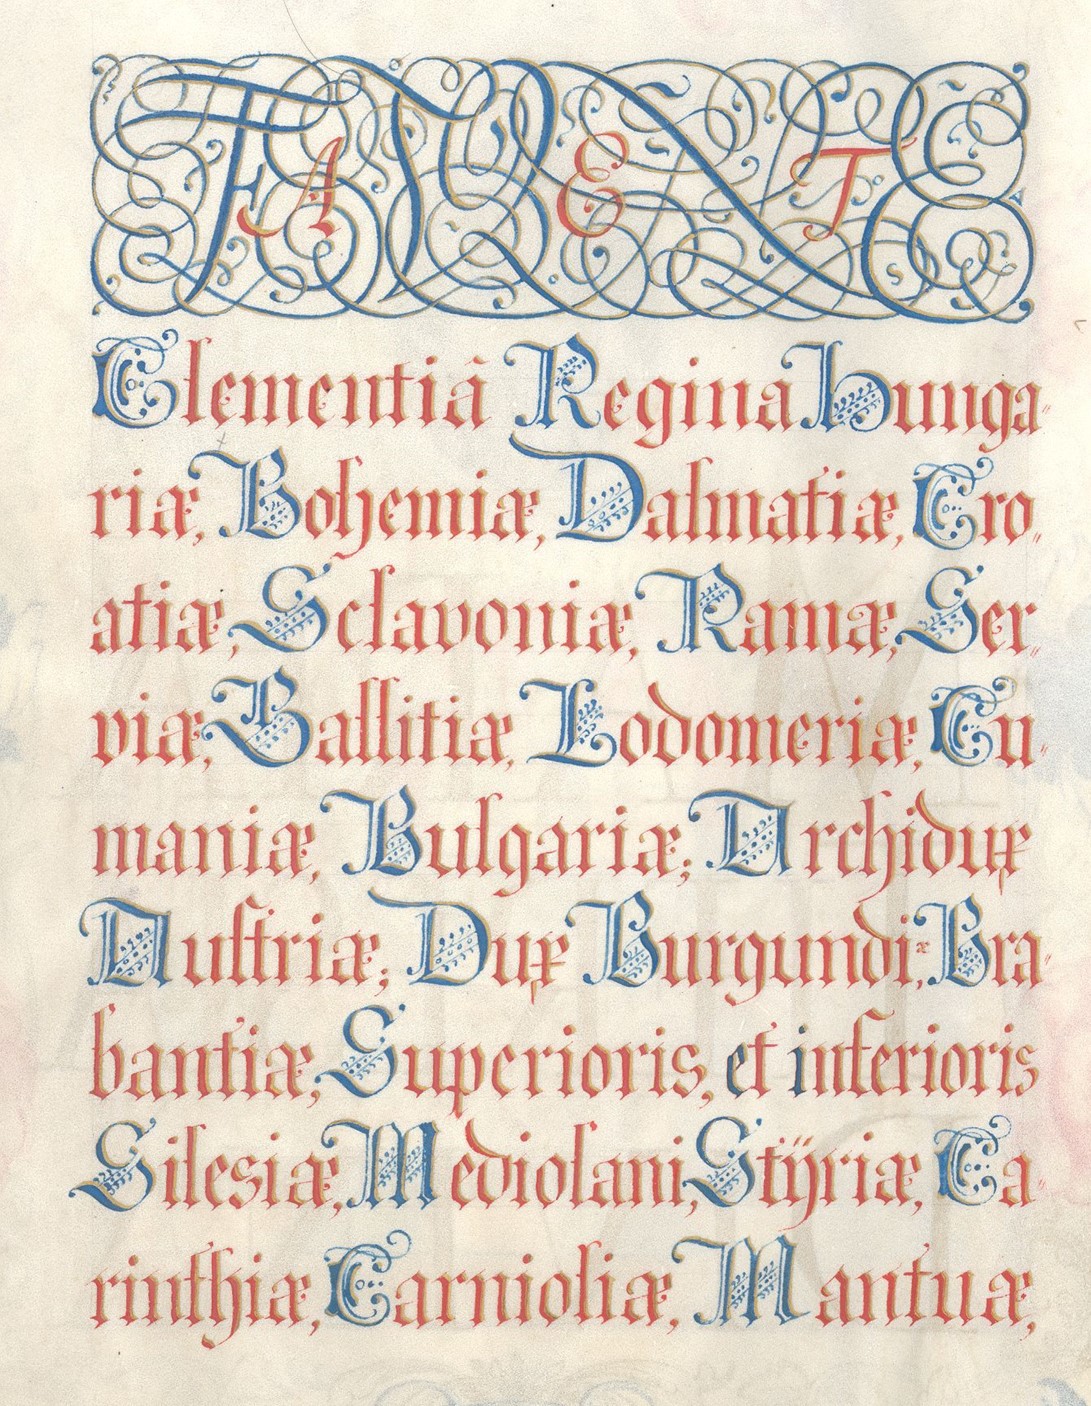 FAVENTE
Clementiâ Regina Hunga-
riæ, Bohemiæ, Dalmatiæ, Cro-
atiæ, Sclavoniæ, Ramæ, Ser-
viæ, Gallitiæ, Lodomeriæ, Cu-
maniæ, Bulgariæ; Archidux
Austriæ; Dux Burgundiæ, Bra-
bantiæ, Superioris, et inferioris
Silesiæ, Mediolani, Stÿriæ, Ca-
rinthiæ, Carnioliæ, Mantuæ,